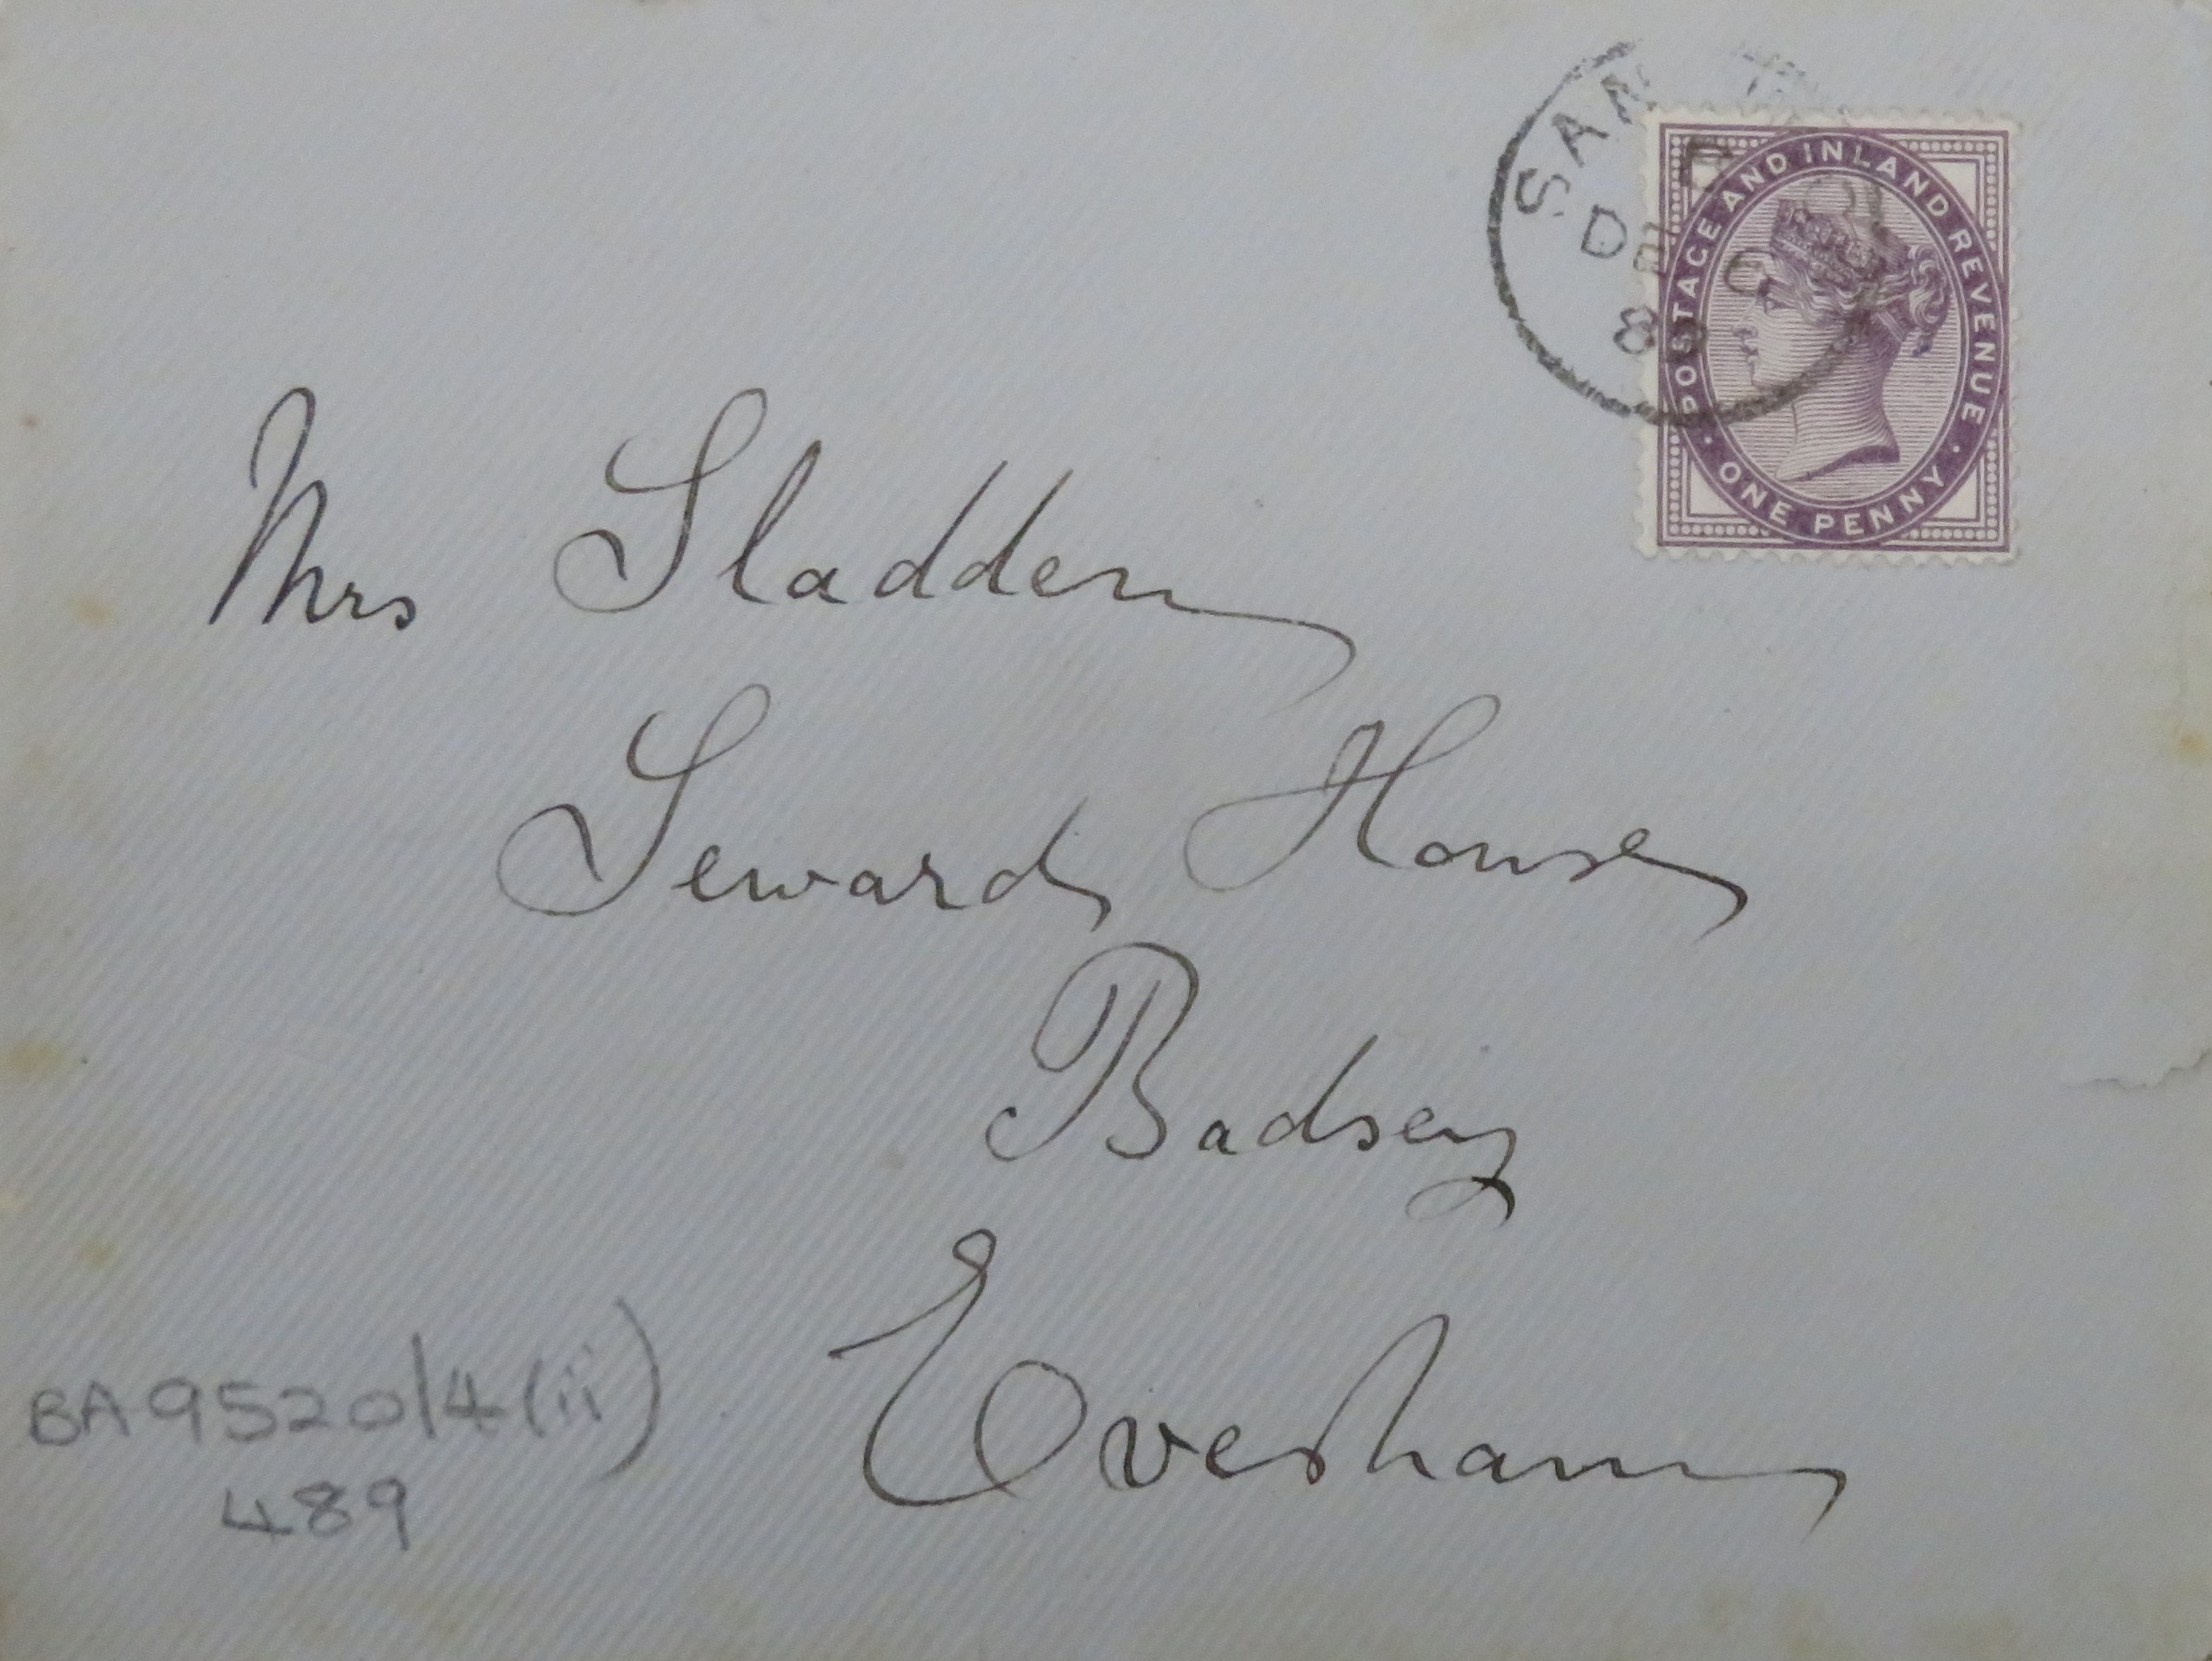 POSTAGE AND INLAND REVENUE
ONE PENNY
DE
Mrs Sladden
Seward House
Badsey
Evesham
BA9520/4(ii)
489